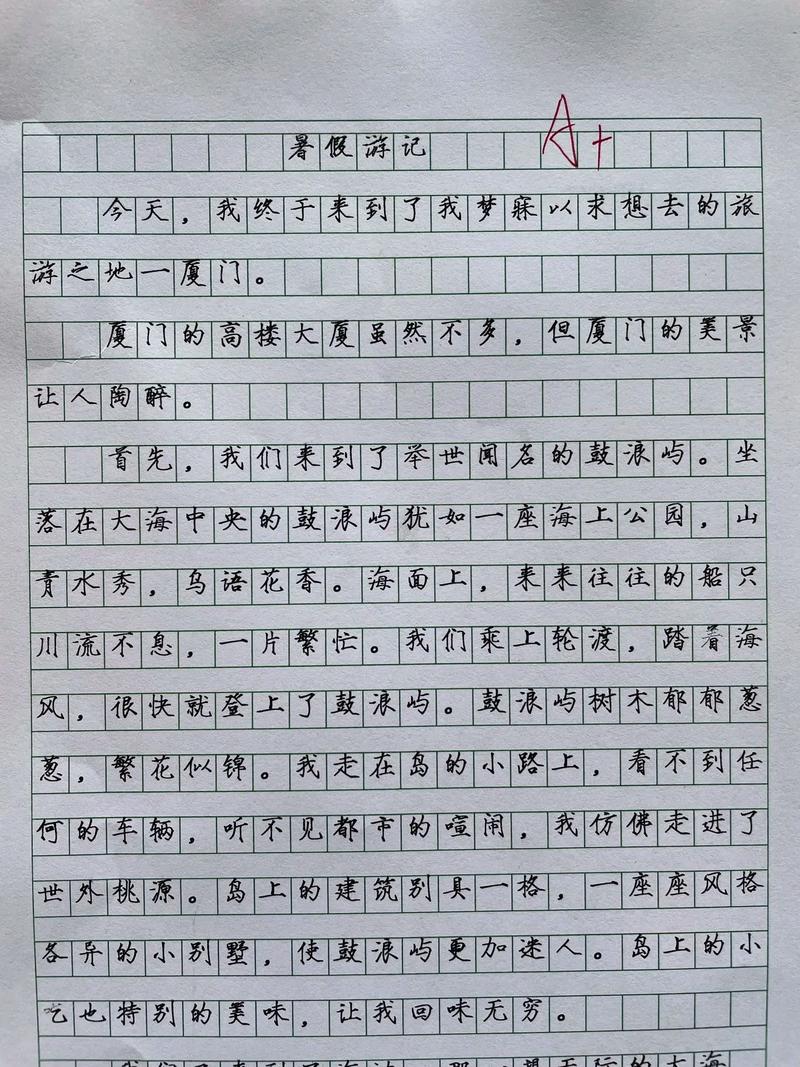 暑假游记
A+
今天，我终于来到了我梦寐以求想去的旅
游之地一厦门。
厦门的高楼大厦虽然不多，但厦门的美景
让人陶醉。
首先，我们来到了举世闻名的鼓浪屿。坐
落在大海中央的鼓浪屿犹如一座海上公园，山
青水秀，鸟语花香。海面上，来来往往的船只
川流不息，一片繁忙。我们乘上轮渡，踏着海
风，很快就登上了鼓浪屿。鼓浪屿树木郁郁葱
葱，繁花似锦。我走在岛的小路上，看不到任
何的车辆，听不见都市的喧闹，我仿佛走进了
世外桃源。岛上的建筑别具一格，一座座风格
各异的小别墅，使鼓浪屿更加迷人。岛上的小
吃也特别的美味，让我回味无穷。